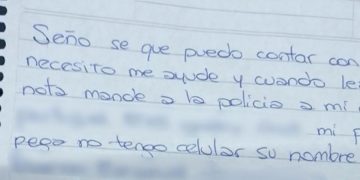 Seño se que puedo contar con
necesito me ayude y cuando le
nota mande a la policia a mi
mi
pega no tengo celular su nombre